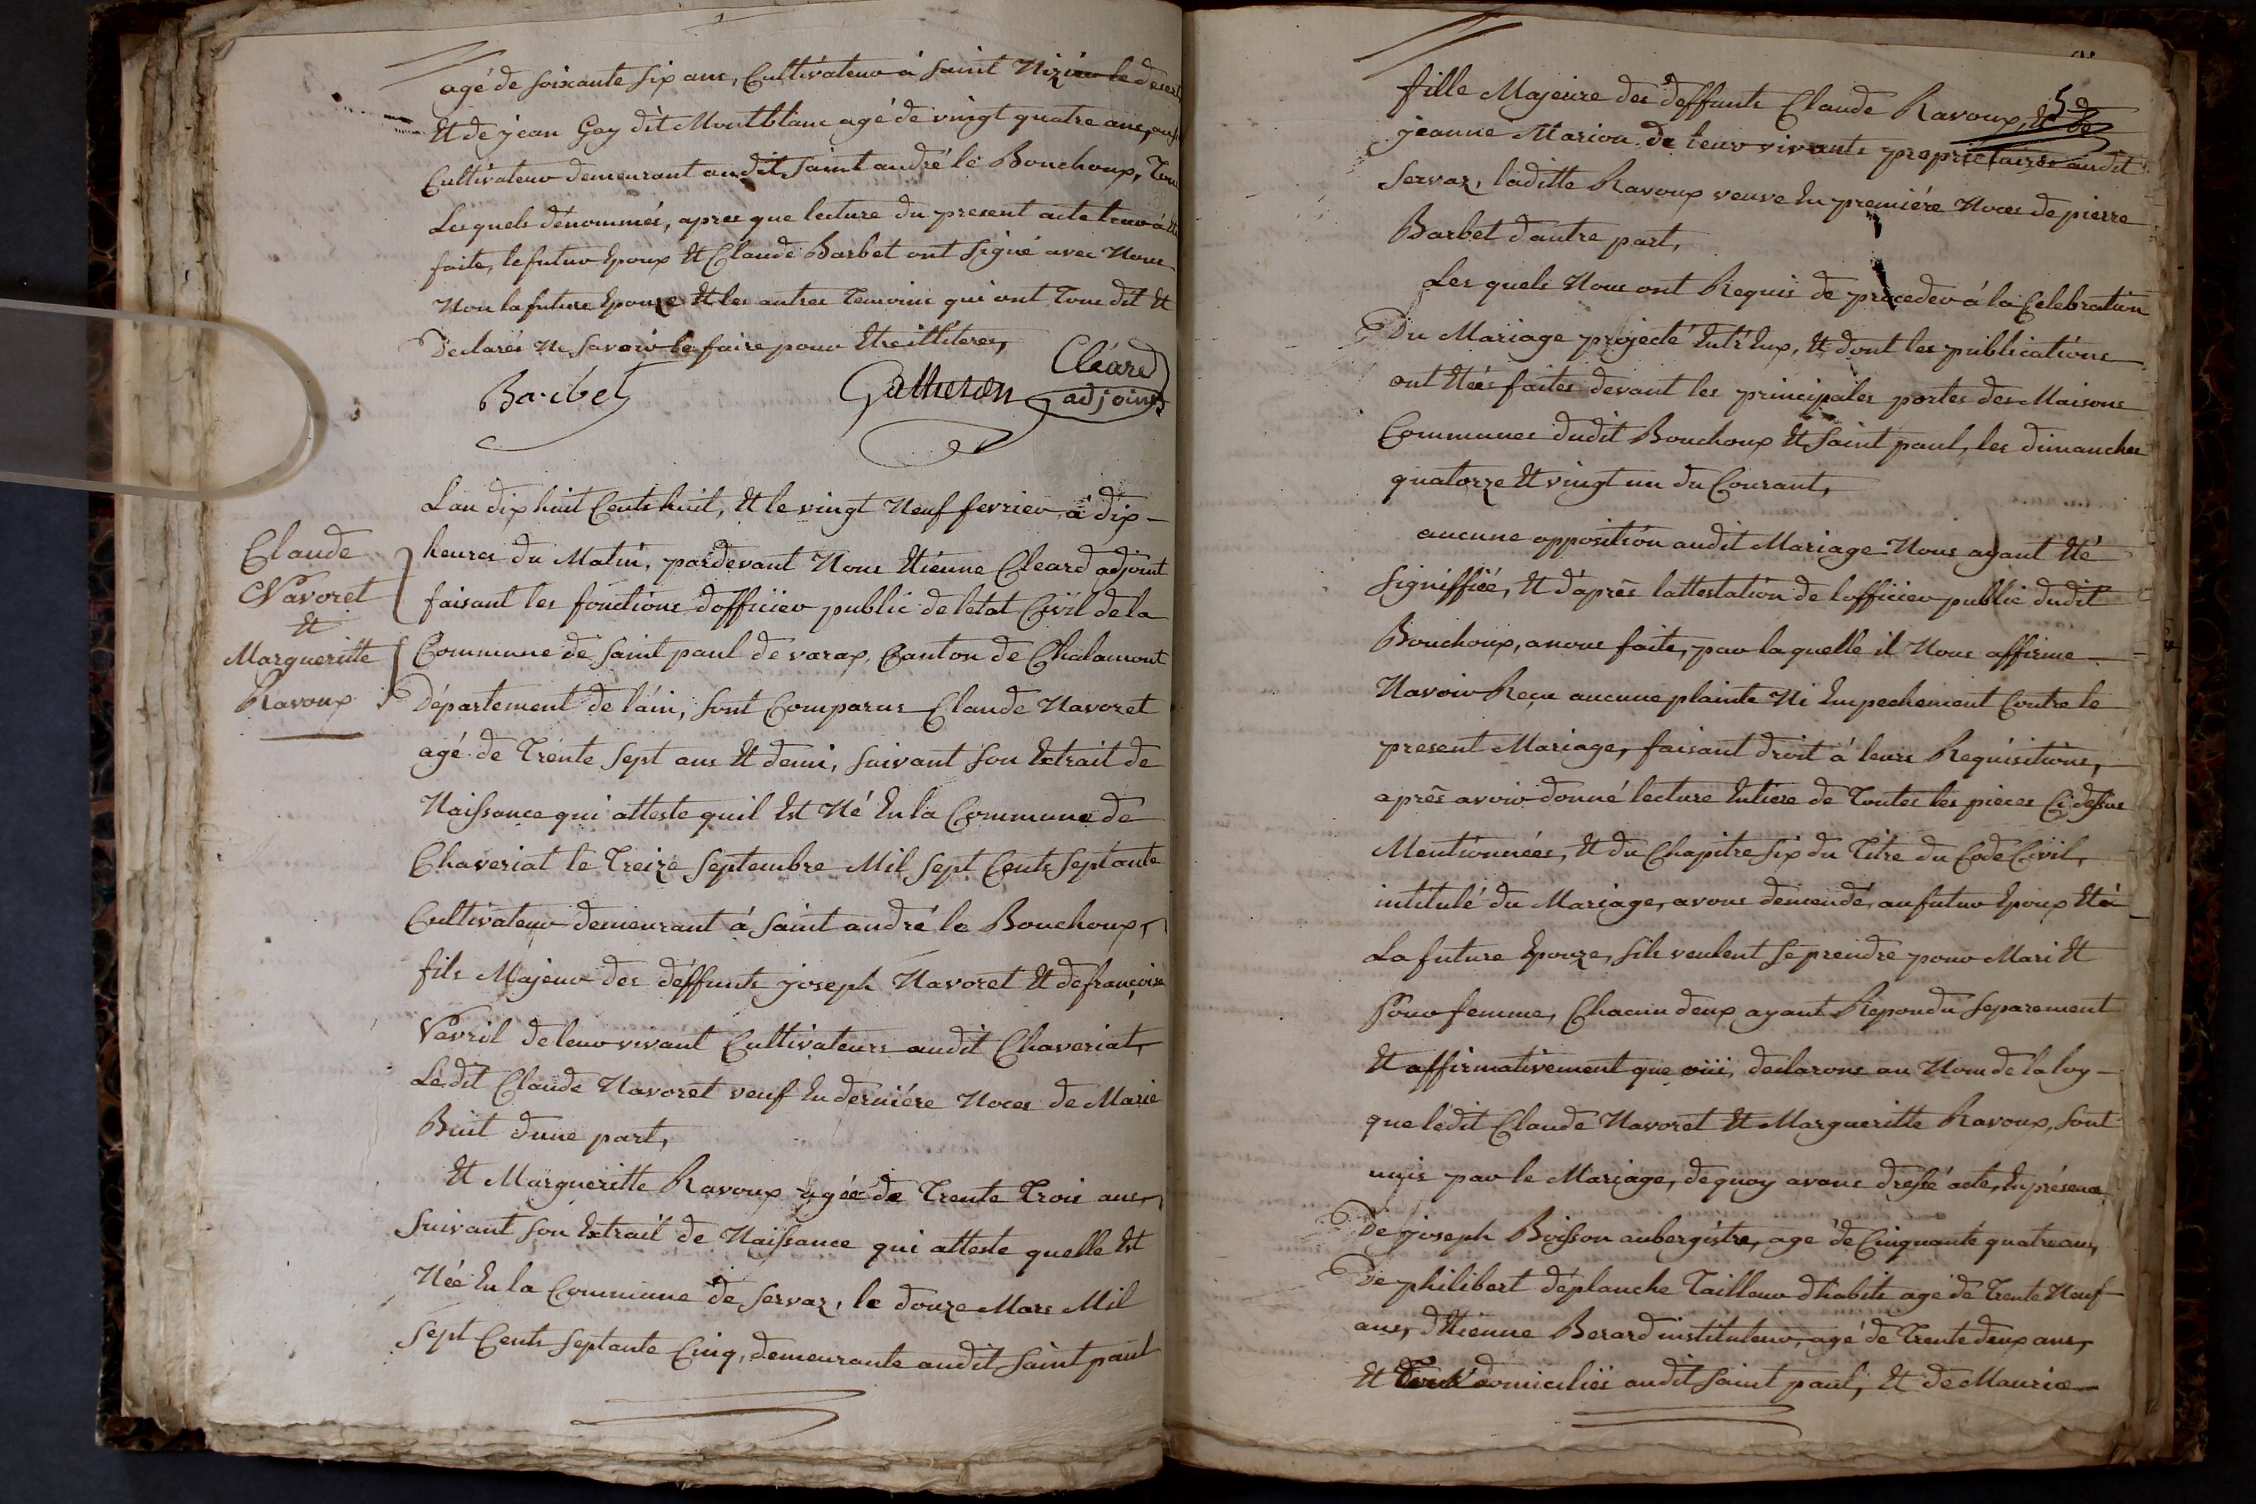 agé de soixante six ans, Cultivateur à saint Nizier le desert
Et de jean Gay dit Montblanc agé de vingt quatre ans, aussi
Cultivateur demeurant audit saint andré le Bouchoux, Tous
Lesquels dénommés, apres que lecture du present acte leur à été
faite, le futur Epoux Et Claude Barbet ont signé avec Nous
Non la future Epouze Et les autres Temoins qui ont Tous dit Et
Déclarés Ne savoir le faire pour Etre illiterés,
Barbet Catheron Cléard
adjoint
L'an dix huit Cents huit, Et le vingt Neuf fevrier à dix
heures du Matin, pardevant Nous Etienne Cleard adjoint
faisant les fonctions d'officier public de letat Civil de la
Commune de saint paul de varax, Canton de Chalamont
Département de l'ain, sont Comparus Claude Navoret
agé de Trente sept ans Et demi, suivant son Extrait de
Naissance qui atteste quil Est Né En la Commune de
Chaveriat le Treize septembre Mil sept Cents septante
Cultivateur demeurant à saint andré le Bouchoux,
fils Majeur des déffunts joseph Navoret Et de françoise
Vavril de leur vivant Cultivateurs audit Chaveriat,
Ledit Claude Navoret veuf En derniére Noces de Marie
Buit dune part,
Et Margueritte Ravoux agée de Trente Trois ans,
suivant son Extrait de Naissance qui atteste quelle Est
Née En la Commune de servaz, le douze Mars Mil
sept Cents septante Cinq, demeurante audit saint paul
Claude
Navoret
Et
Margueritte
Ravoux
5
fille Majeure des deffunts Claude Ravoux, Et de
jeanne Marion de leur vivants proprietaires audit
servaz, laditte Ravoux veuve En premiére Noces de pierre
Barbet d'autre part,
Les quels Nous ont Requis de proceder à la Celebration
Du Mariage projecté Entr'Eux, Et dont les publications
ont Etées faites devant les principales portes des Maisons
Communes dudit Bouchoux Et saint paul, les dimanches
quatorze Et vingt un du Courant,
aucune opposition audit Mariage Nous ayant Eté
signiffiée, Et d'aprés lattestation de lofficier public dudit
Bouchoux, a nous faite, par laquelle il Nous affirme
Navoir Reçu aucune plainte Ni Empechement Contre le
present Mariage, faisant droit à leurs Requisitions,
aprés avoir donné lecture Entiere de Toutes les pieces Ci dessus
Mentionnées, Et du Chapitre six du Titre du Code Civil,
intitulé du Mariage, avons demendé au futur Epoux Et à
La future Epouze, sils veulent se prendre pour Mari Et
Pour femme, Chacun deux ayant Répondu separement
Et affirmativement que oüi, declarons au Nom de la loy
que ledit Claude Navoret Et Margueritte Ravoux, sont
unis par le Mariage, de quoy avons dressé acte, En présence
De joseph Boisson aubergiste, agé de Cinquante quatre ans,
De philibert déplanche Tailleur d'habits agé de Trente Neuf
ans, d'Etienne Berard instituteur, agé de Trente deux ans,
Et Tous domiciliés audit saint paul, Et de Maurice